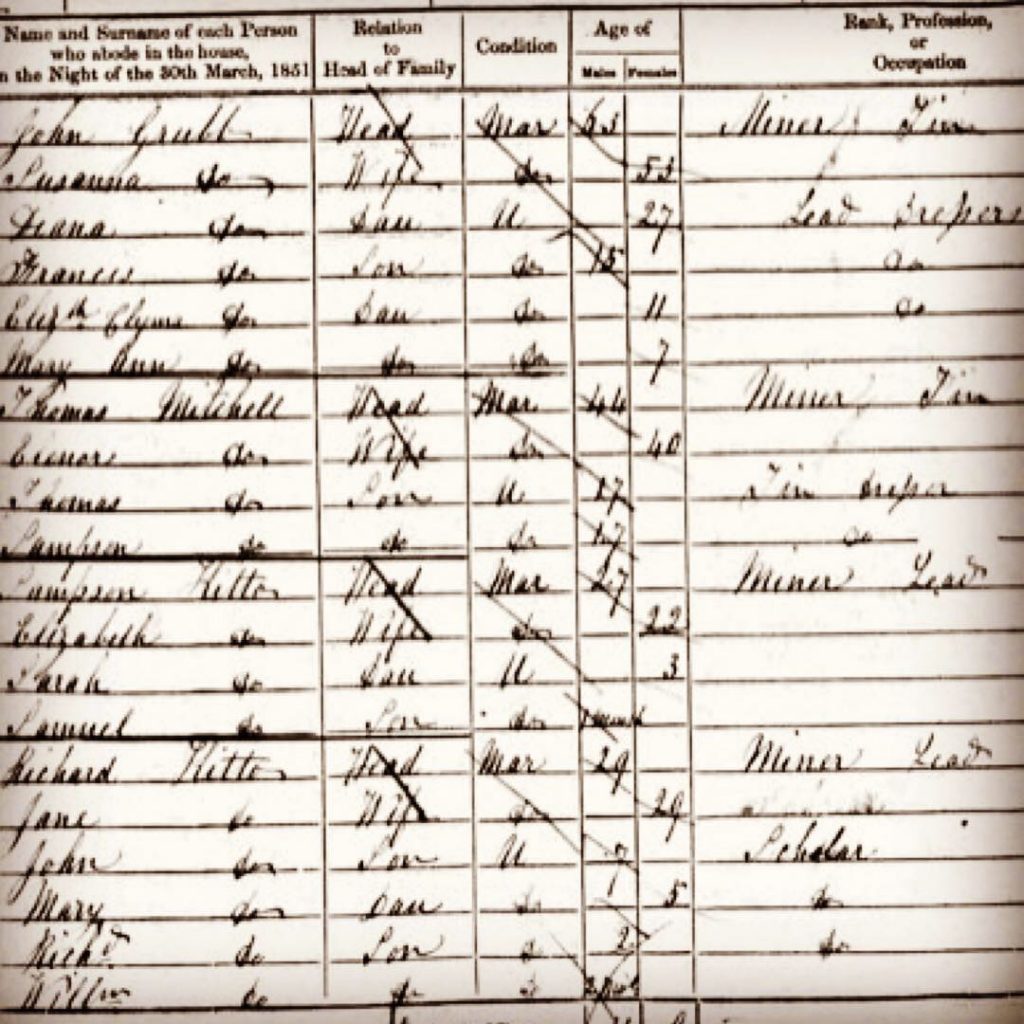 Name and Surname of each Person who abode in the house, n the Night of the 30th March, 1851 Relation to Head of Family Condition Age of Males Females Rank, Profession, or Occupation
John Grubb Head Mar 53 Miner Tin
Susanna do Wife do 53
Deana do Dau U 27 Lead
Francis do Son do 15 do
Elizth do Dau do 11 do
Mary Ann do do do 7
Thomas Mitchell Head Mar 44 Miner Tin
do Wife do 40
Thomas do Son U 17 Tin
Sampson do do do 17 do
Sampson Kitto Head Mar 27 Miner Lead
Elizabeth do Wife do 22
Sarah do Dau U 3
Samuel do Son do
Richard Kitto Head Mar 29 Miner Lead
Jane do Wife do 29
John do Son U 7 Scholar
Mary do Dau do 5 do
Richd do Son do 2 do
Willm do do do